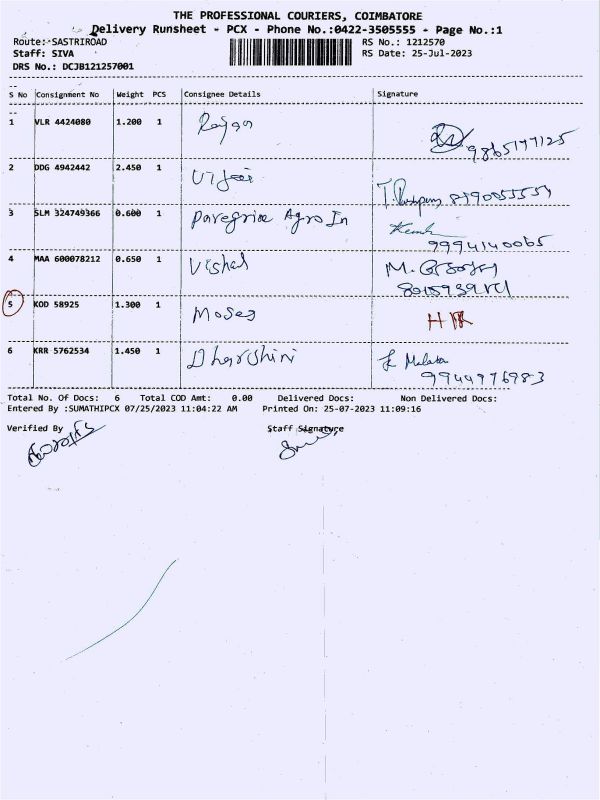 THE PROFESSIONAL COURIERS, COIMBATORE
Delivery Runsheet - PCX - Phone No.:0422-3505555 - Page No.:1
Route: SASTRIROAD RS No.: 1212570
Staff: SIVA RS Date: 25-Jul-2023
DRS No.: DCJB121257001
S No Consignment No Weight PCS Consignee Details Signature
1 VLR 4424080 1.200 1 Rajan
9865177125
2 DDG 4942442 2.450 1 Vijai
3 SLM 324749366 0.600 1 Paregrine Agro In
9994140065
4 MAA 600078212 0.650 1 Vishal M.
5 KOD 58925 1.300 1 Moses
6 KRR 5762534 1.450 1 Dharshini
9944976983
Total No. Of Docs: 6 Total COD Amt: 0.00 Delivered Docs: Non Delivered Docs:
Entered By :SUMATHIPCX 07/25/2023 11:04:22 AM Printed On: 25-07-2023 11:09:16
Verified By Staff Signature